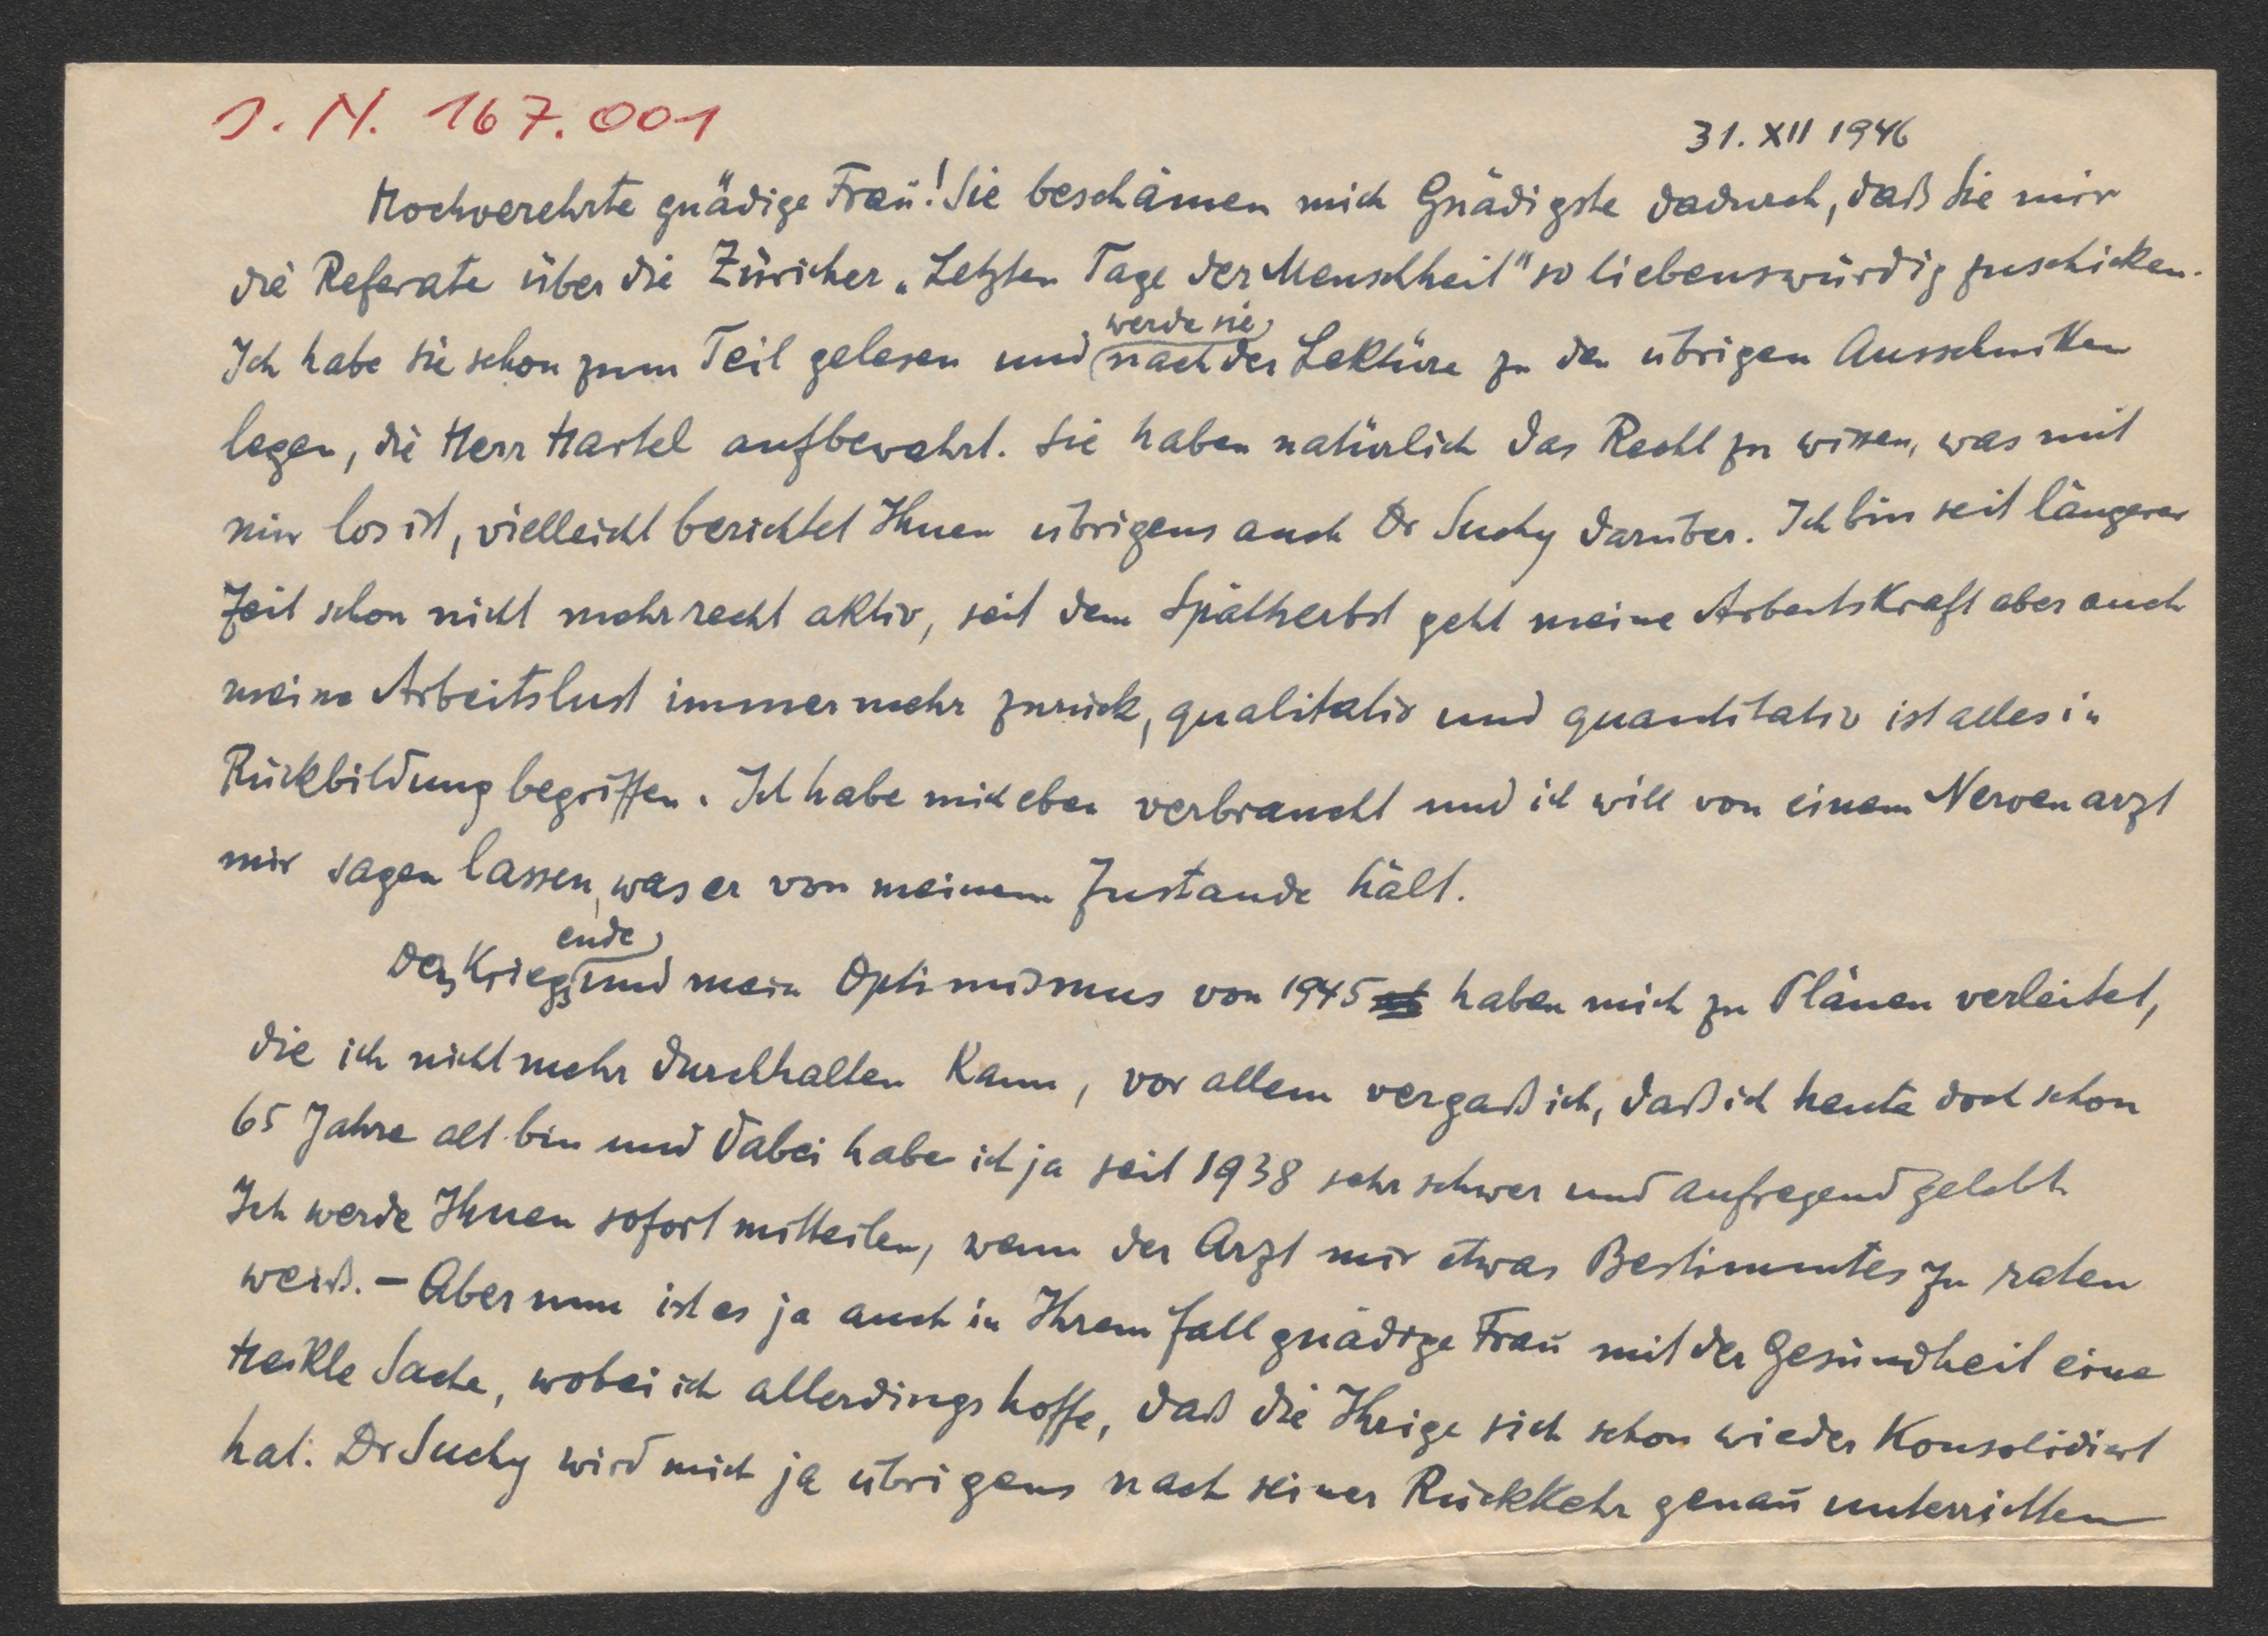 J. N. 167.001
31. XII 1946
Hochverehrte gnädige Frau! Sie beschämen mich Gnädigste dadurch, daß Sie mir
die Referate über die Züricher „Letzten Tage der Menschheit" so liebenswürdig zuschicken.
Ich habe sie schon zum Teil gelesen und werde sie nach der Lektüre zu den übrigen Ausschnitten
legen, die Herr Hartel aufbewahrt. Sie haben natürlich das Recht zu wissen, was mit
mir los ist, vielleicht berichtet Ihnen übrigens auch Dr Suchy darüber. Ich bin seit längerer
Zeit schon nicht mehr recht aktiv, seit dem Spätherbst geht meine Arbeitskraft aber auch
meine Arbeitslust immer mehr zurück, qualitativ und quantitativ ist alles in
Rückbildung begriffen. Ich habe mich eben verbraucht und ich will von einem Nervenarzt
mir sagen lassen, was er von meinem Zustande hält.
Das Kriegsende und mein Optimismus von 1945 haben mich zu Plänen verleitet,
die ich nicht mehr durchhalten kann, vor allem vergaß ich, daß ich heute doch schon
65 Jahre alt bin und dabei habe ich ja seit 1938 sehr schwer und aufregend gelebt.
Ich werde Ihnen sofort mitteilen, wenn der Arzt mir etwas Bestimmtes zu raten
weiß. – Aber nun ist es ja auch in Ihrem Fall gnädige Frau mit der Gesundheit eine
heikle Sache, wobei ich allerdings hoffe, daß die Ihrige sich schon wieder konsolidiert
hat. Dr Suchy wird mich ja übrigens nach seiner Rückkehr genau unterrichten